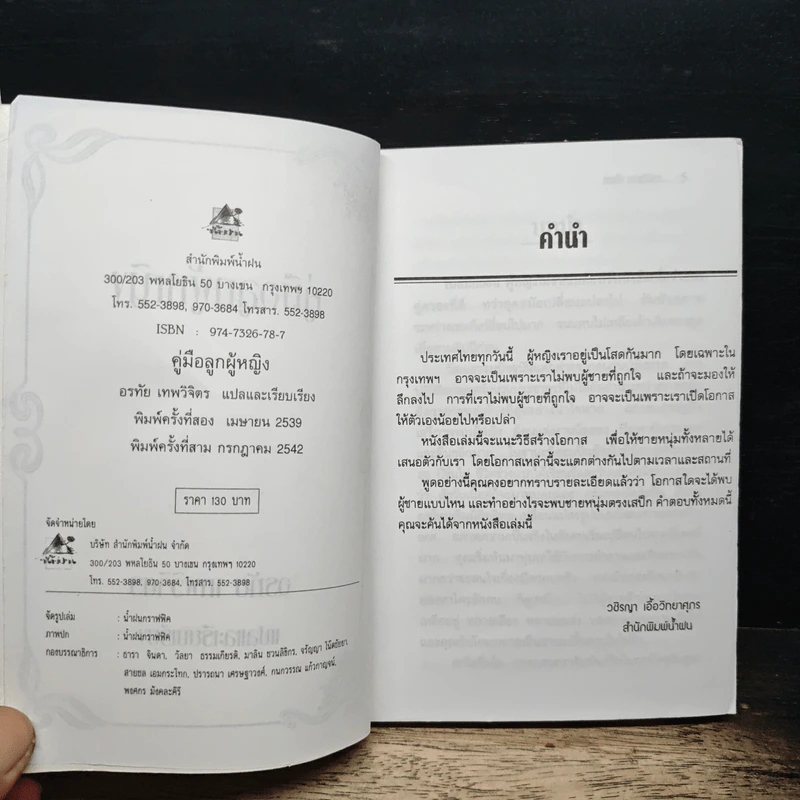 สำนักพิมพ์น้ำฝน
300/203 พหลโยธิน 50 บางเขน กรุงเทพฯ 10220
โทร. 552-3898, 970-3684 โทรสาร. 552-3898
ISBN : 974-7326-78-7
คู่มือลูกผู้หญิง
อรทัย เทพวิจิตร แปลและเรียบเรียง
พิมพ์ครั้งที่สอง เมษายน 2539
พิมพ์ครั้งที่สาม กรกฎาคม 2542
ราคา 130 บาท
จัดจำหน่ายโดย
บริษัท สำนักพิมพ์น้ำฝน จำกัด
300/203 พหลโยธิน 50 บางเขน กรุงเทพฯ 10220
โทร. 552-3898, 970-3684, โทรสาร. 552-3898
จัดรูปเล่ม : น้ำฝนกราฟฟิค
ภาพปก : น้ำฝนกราฟฟิค
กองบรรณาธิการ : ธารา จินดา, วัลยา ธรรมเกียรติ, มาลิน ชวนลิขิกร, จรัญญา
สายชล เอมกระโทก, ปรารถนา เศรษฐาวงศ์, กนกวรรณ แก้วกาญจน์,
พงศกร มังคละคีรี
คำนำ
ประเทศไทยทุกวันนี้ ผู้หญิงเราอยู่เป็นโสดกันมาก โดยเฉพาะใน
กรุงเทพฯ อาจจะเป็นเพราะเราไม่พบผู้ชายที่ถูกใจ และถ้าจะมองให้
ลึกลงไป การที่เราไม่พบผู้ชายที่ถูกใจ อาจจะเป็นเพราะเราเปิดโอกาส
ให้ตัวเองน้อยไปหรือเปล่า
หนังสือเล่มนี้จะแนะวิธีสร้างโอกาส เพื่อให้ชายหนุ่มทั้งหลายได้
เสนอตัวกับเรา โดยโอกาสเหล่านี้จะแตกต่างกันไปตามเวลาและสถานที่
พูดอย่างนี้คุณคงอยากทราบรายละเอียดแล้วว่า โอกาสใดจะได้พบ
ผู้ชายแบบไหน และทำอย่างไรจะพบชายหนุ่มตรงเสป็ก คำตอบทั้งหมดนี้
คุณจะค้นได้จากหนังสือเล่มนี้
วชิรญา เอื้อวิทยาศุภร
สำนักพิมพ์น้ำฝน